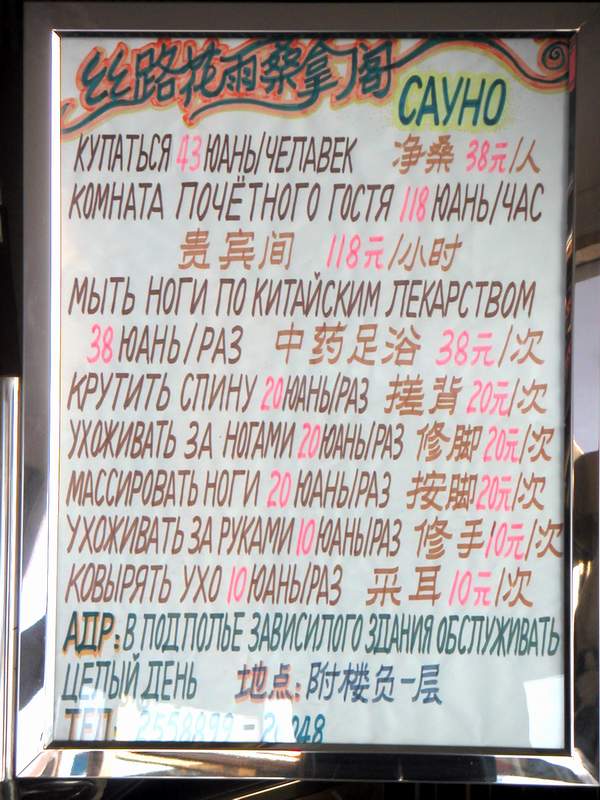 丝路花雨桑拿阁 САУНО
КУПАТЬСЯ 43 ЮАНЬ/ЧЕЛАВЕК 净桑 38元/人
КОМНАТА ПОЧЁТНОГО ГОСТЯ 118 ЮАНЬ/ЧАС
贵宾间 118元/小时
МЫТЬ НОГИ ПО КИТАЙСКИМ ЛЕКАРСТВОМ
38 ЮАНЬ/РАЗ 中药足浴 38元/次
КРУТИТЬ СПИНУ 20ЮАНЬ/РАЗ 搓背 20元/次
УХОЖИВАТЬ ЗА НОГАМИ 20ЮАНЬ/РАЗ 修脚 20元/次
МАССИРОВАТЬ НОГИ 20 ЮАНЬ/РАЗ 按脚 20元/次
УХОЖИВАТЬ ЗА РУКАМИ 10 ЮАНЬ/РАЗ 修手 10元/次
КОВЫРЯТЬ УХО 10 ЮАНЬ/РАЗ 采耳 10元/次
АДР: В ПОДПОЛЬЕ ЗАВИСИЛОГО ЗДАНИЯ ОБСЛУЖИВАТЬ
ЦЕЛЫЙ ДЕНЬ 地点: 附楼负一层
ТЕЛ: 2558899-